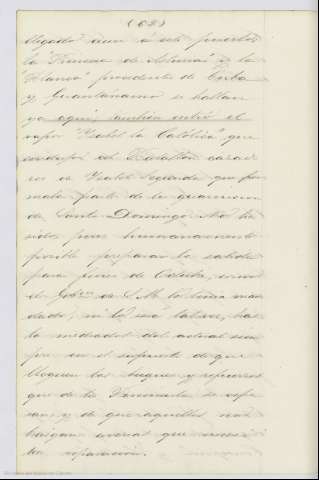 (62)
llegado aun á este puerto
la "Princesa de Asturias" y la
"Blanca" procedentes de Cuba
y Guantánamo se hallan
ya aquí; tambien entró el
vapor "Ysabel la Católica" que
condujo el Batallon cazado
res de Ysabel Segunda que for
maba parte de la guarnicion
de Santo Domingo. No ha
sido pues humanamente
posible preparar la salida
para fines de Octubre, como
el Gobno. de S. M. lo tenia man
dado, ni lo será tal vez, has
ta mediados del actual siem
pre en el supuesto de que
lleguen los buques y refuerzos
que de la Peninsula se espe
ran y de que aquellos no
traigan averias que
reparacion.